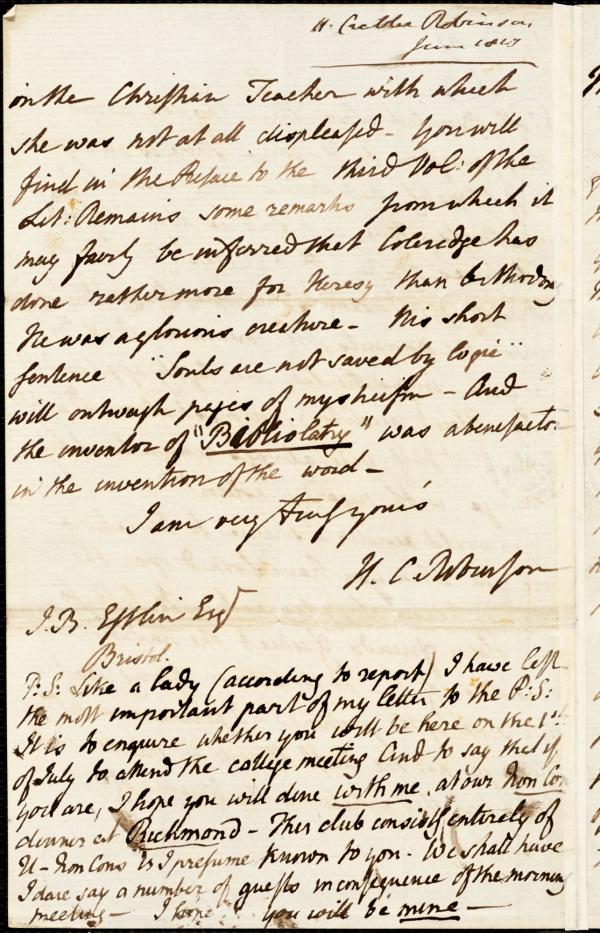 H. Crabb Robinson
June 1847
on the Christian Teacher with which
she was not at all displeased - You will
find in the Preface to the third Vol: of the
Lit: Remains some remarks from which it
may fairly be inferred that Coleridge has
done rather more for Heresy than Orthodoxy
He was a glorious creature - His short
sentence "Souls are not saved by Logic"
will outweigh pages of mysticism - And
the inventor of "Bibliolatry" was a benefactor
in the invention of the word -
I am very truly yours
H. C. Robinson
J. B. Estlin Esq
Bristol.
P: S: Like a lady (according to report) I have left
the most important part of my letter to the P: S:
It is to enquire whether you will be here on the 1st
of July to attend the college meeting And to say that if
you are, I hope you will dine with me, at our Non Con
dinner at Richmond - This club consists entirely of
U- Non Cons as I presume known to you. We shall have
I dare say a number of guests in consequence of the morning
meeting - I hope you will be mine -